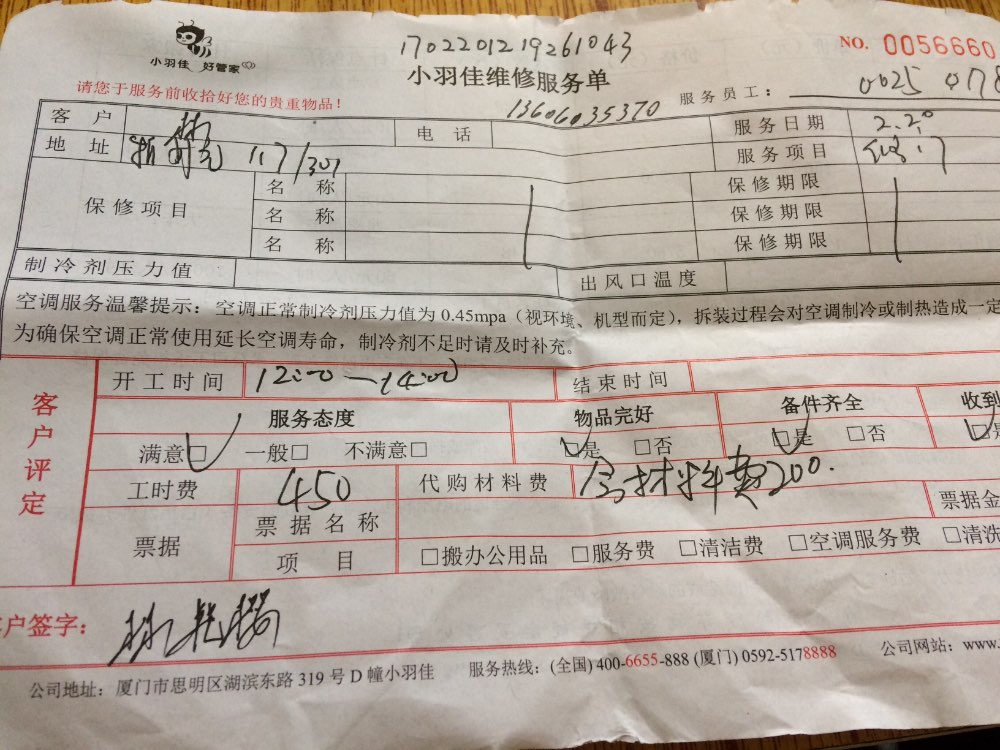 小羽佳 好管家
170220121926１043
NO. 0056660
小羽佳维修服务单
请您于服务前收拾好您的贵重物品！
13606035370
服务员工： 0025 078
客户 林 电话 服务日期 2.20
地址 117/301 服务项目
保修项目 名称 保修期限
名称 保修期限
名称 保修期限
制冷剂压力值 出风口温度
空调服务温馨提示：空调正常制冷剂压力值为 0.45mpa（视环境、机型而定），拆装过程会对空调制冷或制热造成一定
为确保空调正常使用延长空调寿命，制冷剂不足时请及时补充。
客户评定
开工时间 12:00—14:00 结束时间
服务态度 物品完好 备件齐全 收到
满意□ 一般□ 不满意□ □是 □否 □是 □否 □是
工时费 450 代购材料费 含材料费200.
票据 票据名称 票据金
项目 □搬办公用品 □服务费 □清洁费 □空调服务费 □清洗
客户签字： 林
公司地址：厦门市思明区湖滨东路 319 号 D 幢小羽佳 服务热线：(全国) 400-6655-888 (厦门) 0592-5178888 公司网站：www.